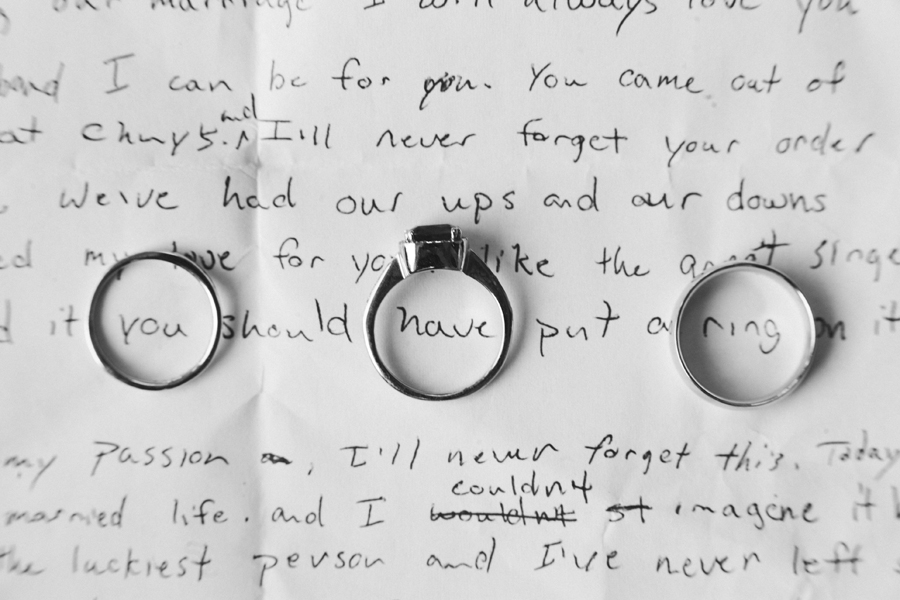 our marriage I will always love you
band I can be for you. You came out of
at Chuy's. and I'll never forget your order
We've had our ups and our downs
ed my love for you like the great singe
d it you should have put a ring on it
my passion, I'll never forget this. Today
married life. and I wouldn't couldn't st imagine it
the luckiest person and I've never left